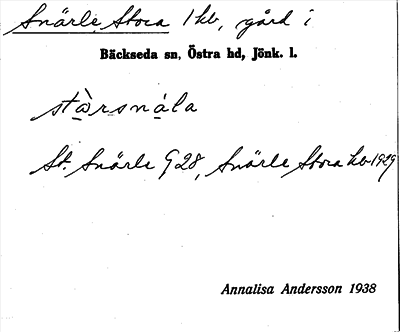 Snärle, Stora 1 hb, gård i
Bäckseda sn, Östra hd, Jönk. l.
stàrsnála
St. Snärle G28, Snärle Stora hb 1929
Annalisa Andersson 1938